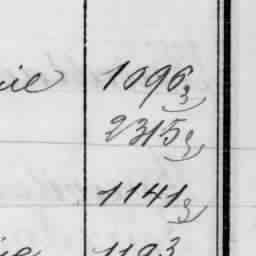 1096 3
2315 3
1141 3
1193